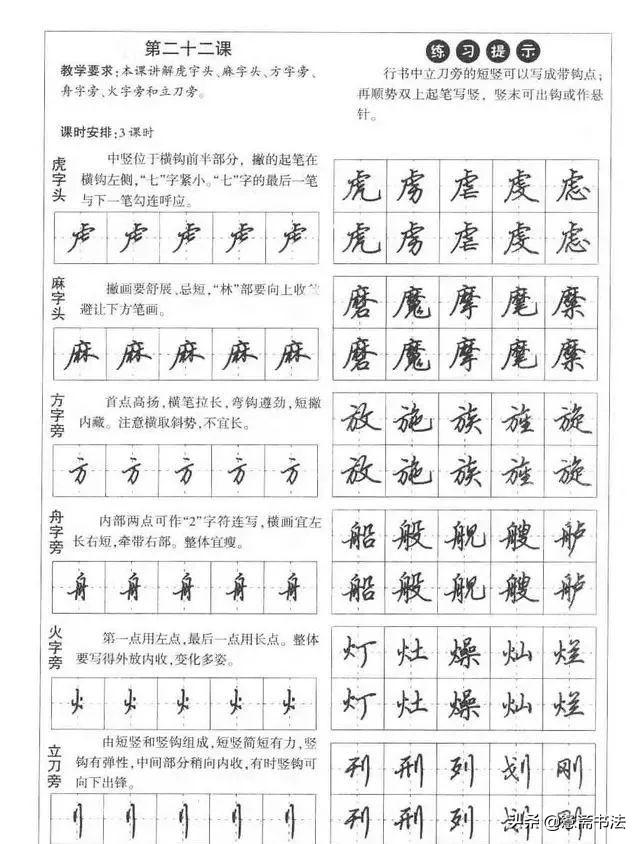 第二十二课
教学要求：本课讲解虎字头、麻字头、方字旁、
舟字旁、火字旁和立刀旁。
课时安排：3课时
练习提示
行书中立刀旁的短竖可以写成带钩点；
再顺势双上起笔写竖，竖末可出钩或作悬
针。
虎字头
中竖位于横钩前半部分，撇的起笔在
横钩左侧，“七”字紧小。“七”字的最后一笔
与下一笔勾连呼应。
虎 虏 虐 虔 虑
虎 虏 虐 虔 虑
麻字头
撇画要舒展、忌短，“林”部要向上收
避让下方笔画。
麻 麻 麻 麻 麻
磨 魔 摩 麾 縻
磨 魔 摩 麾 縻
方字旁
首点高扬，横笔拉长，弯钩遵劲，短撇
内藏。注意横取斜势，不宜长。
方 方 方 方 方
放 施 族 旌 旋
放 施 族 旌 旋
舟字旁
内部两点可作“2”字符连写，横画宜左
长右短，牵带右部。整体宜瘦。
舟 舟 舟 舟 舟
船 般 舰 艘 舻
船 般 舰 艘 舻
火字旁
第一点用左点，最后一点用长点。整体
要写得外放内收，变化多姿。
火 火 火 火 火
灯 灶 燥 灿 烂
灯 灶 燥 灿 烂
立刀旁
由短竖和竖钩组成，短竖简短有力，竖
钩有弹性，中间部分稍向内收，有时竖钩可
向下出锋。
刂 刂 刂 刂 刂
刊 刑 列 划 刚
刊 刑 列 划 刚
头条 @慧斋书法